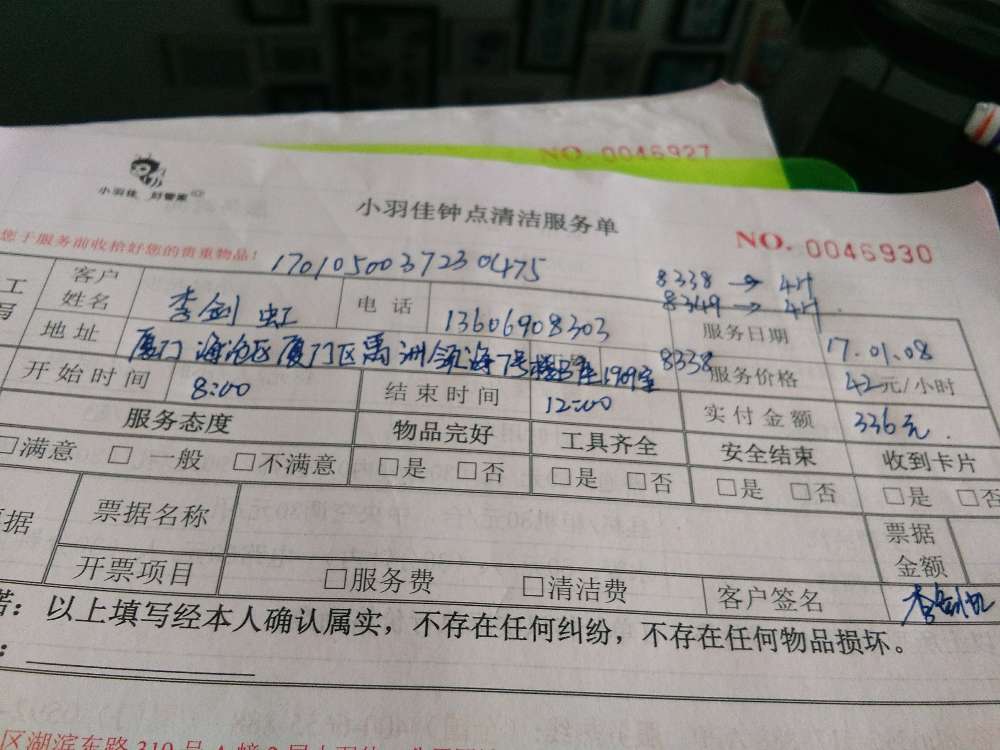 NO. 0046927
小羽佳 好管家
小羽佳钟点清洁服务单
NO. 0046930
您于服务前收拾好您的贵重物品!
17010500372304​75
8338 → 4H
8349 → 4H
工
客户姓名 李剑虹 电话 13606908303 服务日期 17.01.08
地址 厦门海沧区厦门区禹洲领海7号楼B座1909室 8338 服务价格 42元/小时
开始时间 8:00 结束时间 12:00 实付金额 336元.
服务态度 物品完好 工具齐全 安全结束 收到卡片
□满意 □一般 □不满意 □是 □否 □是 □否 □是 □否 □是 □否
据 票据名称 票据金额
开票项目 □服务费 □清洁费 客户签名 李剑虹
诺:以上填写经本人确认属实,不存在任何纠纷,不存在任何物品损坏。
:
区湖滨东路319号A幢2层